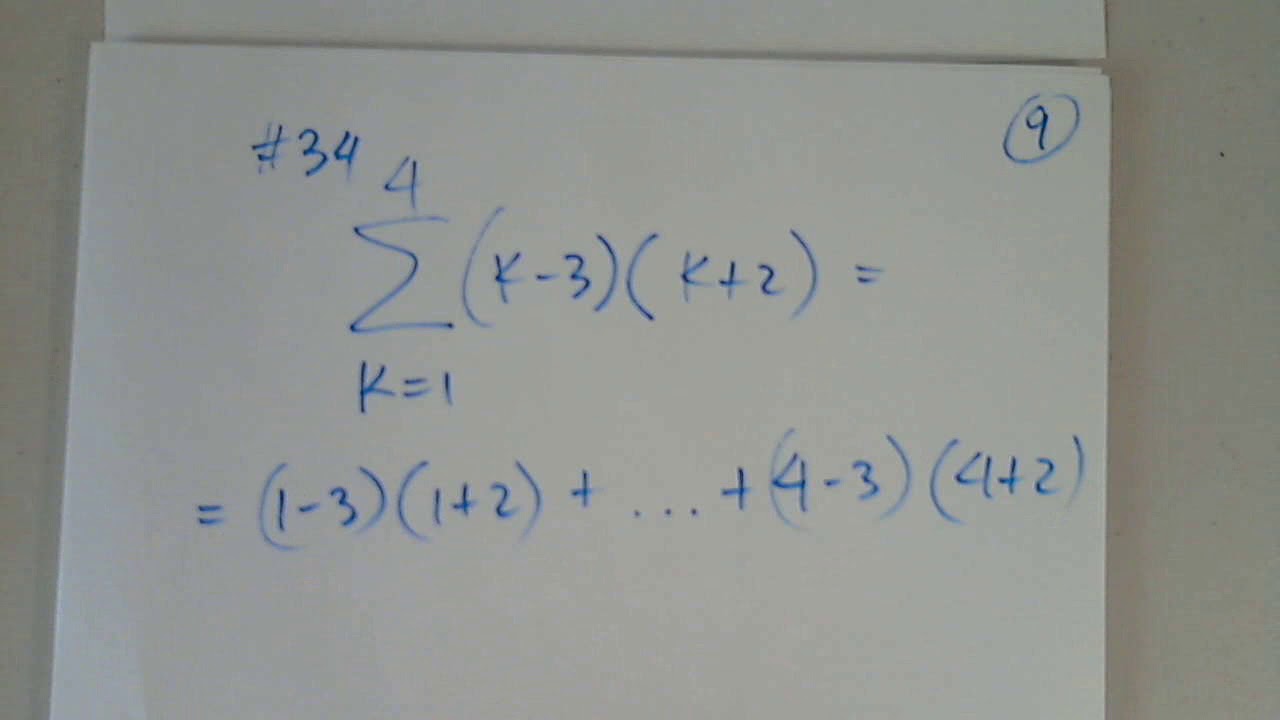 #34
9
4
∑ (K-3)(K+2) =
K=1
= (1-3)(1+2) + ... + (4-3)(4+2)